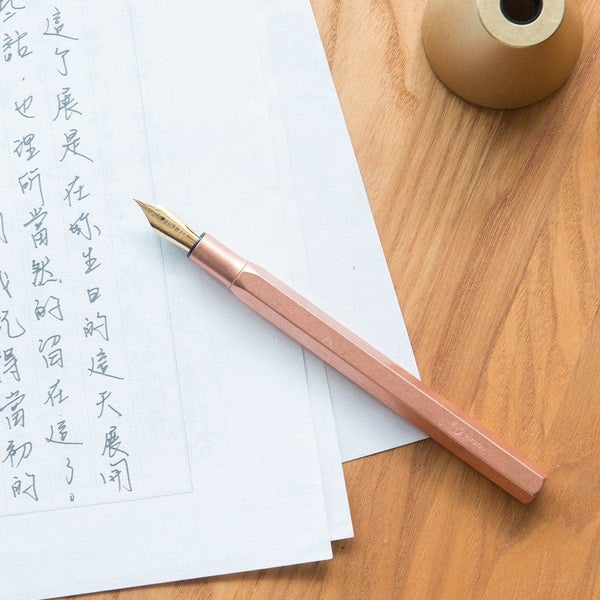 這个展是在妳生日的這天展開
話，也理所當然的留在這了。
得當初的